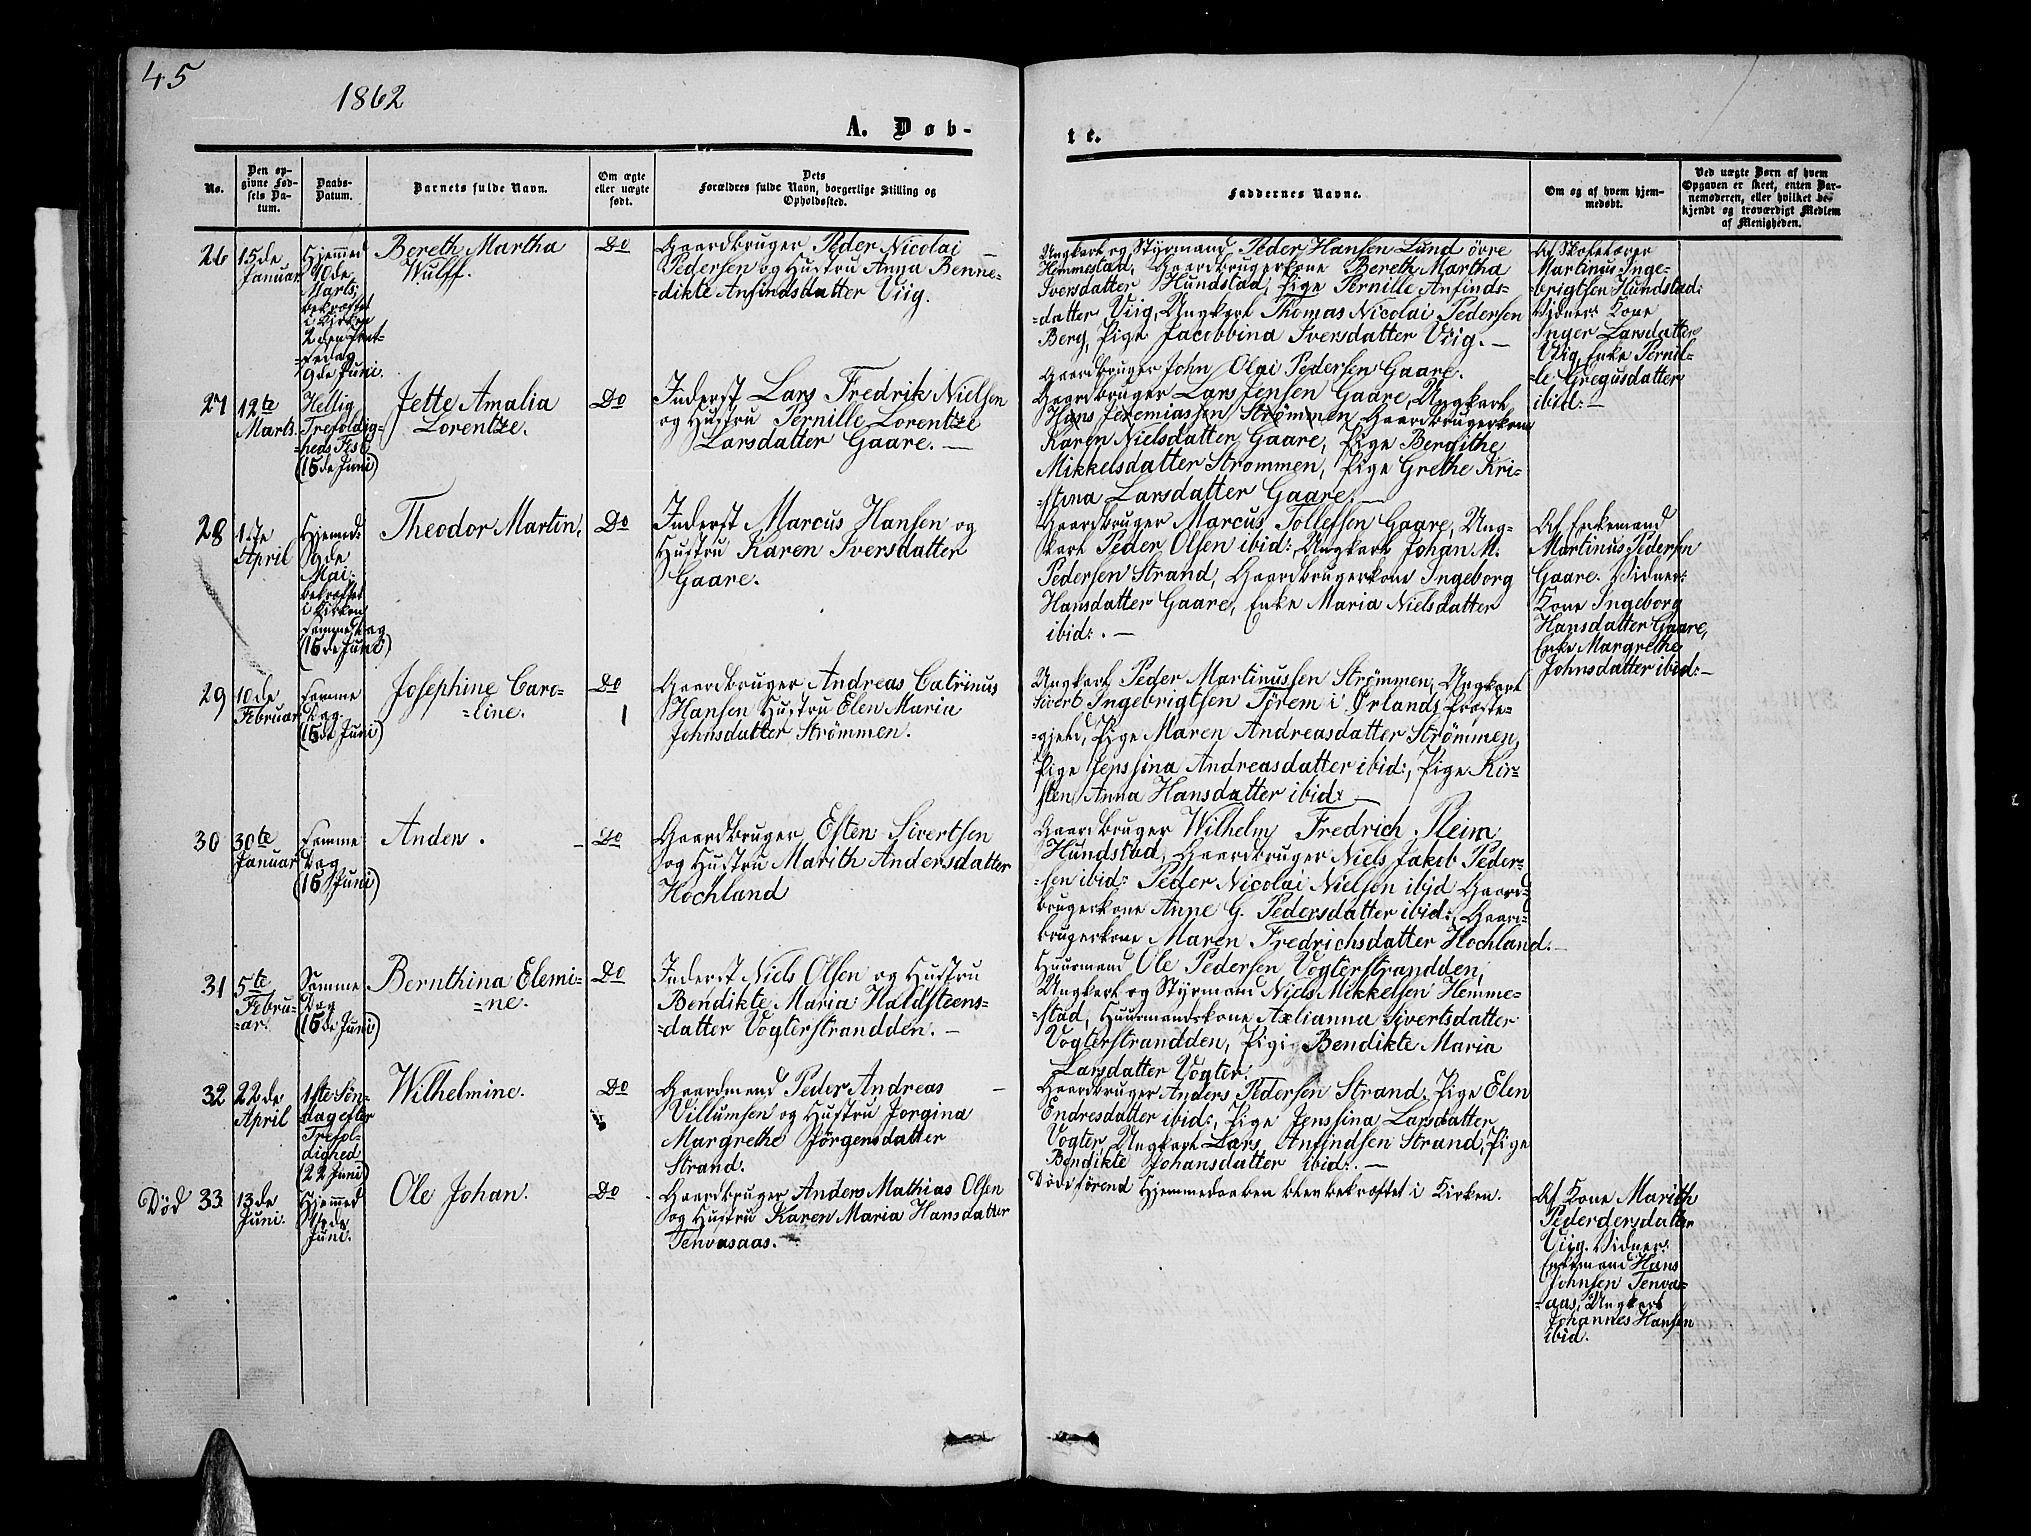 45
1862
A. Døb-
te.
No.
Den op-
givne Fød-
sels Da-
tum.
Daabs-
Datum.
Barnets fulde Navn.
Om ægte
eller uægte
født.
Dets
Forældres fulde Navn, borgerlige Stilling og
Opholdssted.
Faddernes Navne.
Om og af hvem hjem-
medøbt.
Ved uægte Børn af hvem
Opgaven er skeet, enten Bar-
nemoderen, eller hvilket be-
kjendt og troværdigt Medlem
af Menigheden.
26
15de
Januar
Hjemmed
10de
Marts;
bekræftet
i Kirken
2den Pint-
sedag
9de Juni.
Bereth Martha
Wulff.
Do
Gaardbruger Peder Nicolai
Pedersen og Hustru Anna Benne-
=dikte Anfindsdatter Viig.
Ungkarl og Styrmand Peder Hansen Lund øvre
Hemmestad, Gaardbrugerkone Bereth Martha
Iversdatter Hundstad, Pige Pernille Anfinds-
=datter Viig, Ungkarl Thomas Nicolai Pedersen
Berg, Pige Jacobbina Iversdatter Viig. —
Gaardbruger John Olai Pedersen Gaare.
Af Skolelærer
Martinus Inge-
brigtsen Hundstad:
Vidner: Kone
Inger Larsdatter
Viig, Enke Pernil-
=le Gregusdatter
ibid: —
27
12te
Marts.
Hellig
Trefoldig-
=heds Fest
(15de Juni)
Jette Amalia
Lorentze.
Do
Inderst Lars Fredrik Nielsen
og Hustru Pernille Lorentze
Larsdatter Gaare. —
Gaardbruger Lars Jensen Gaare, Ungkarl
Hans Jeremiassen Strømmen, Gaardbrugerkone
Karen Nielsdatter Gaare, Pige Bergithe
Mikkelsdatter Strømmen, Pige Grethe Kri-
=stina Larsdatter Gaare. —
28
17e
April
Hjemmed:
9de
Mai;
bekræftet
i Kirken
samme Dag
(15de Juni)
Theodor Martin.
Do
Inderst Marcus Hansen og
Hustru Karen Iversdatter
Gaare.
Gaardbruger Marcus Tollefsen Gaare, Ung-
karl Peder Olsen ibid: Ungkarl Johan M.
Pedersen Strand, Gaardbrugerkone Ingeborg
Hansdatter Gaare, Enke Maria Nielsdatter
ibid: . —
Af Enkemand
Martinus Pedersen
Gaare. Vidner:
Kone Ingeborg
Hansdatter Gaare,
Enke Margrethe
Johnsdatter ibid: —
29
10de
Februar
Samme
Dag
(15de Juni)
Josephine Caro-
=line.
Do
Gaardbruger Andreas Catrinus
Hansen Hustru Elen Maria
Johnsdatter Strømmen.
Ungkarl Peder Martinussen Strømmen, Ungkarl
Sivert Ingebrigtsen Tørem i Ørlands Præste-
=gjeld, Pige Maren Andreasdatter Strømmen,
Pige Jenssina Andreasdatter ibid:, Pige Kir-
sten Anna Hansdatter ibid: —
30
30te
Januar
Samme
Dag
(15 Juni)
Anders.
Do
Gaardbruger Esten Sivertsen
og Hustru Marith Andersdatter
Hochland
Gaardbruger Wilhelm Fredrich Kleim
Hundstad, Gaardbruger Niels Jakob Peder-
=sen ibid: Peder Nicolai Nielsen ibid Gaard-
brugerkone Anne G. Pedersdatter ibid:, Gaard-
brugerkone Maren Fredrichsdatter Hochland. —
31
5te
Febru-
=ar.
Samme
Dag
(15de Juni)
Bernthina Elemi-
=ne.
Do
Inderst Niels Olsen og Hustru
Bendikte Maria Haldsteens-
=datter Vogterstrandden. —
Huusmand Ole Pedersen Vogterstrandden,
Ungkarl og Styrmand Niels Mikkelsen Hemme-
=stad, Huusmandskone Axelianna Sivertsdatter
Vogterstrandden, Pige Bendikte Maria
Larsdatter Vogter.
32
22de
April
1ste Søn-
dag efter
Trefol-
dighed
(22 Juni)
Wilhelmine.
Do
Gaardmand Peder Andreas
Villumsen og Hustru Jorgina
Margrethe Jørgensdatter
Strand.
Gaardbruger Anders Pedersen Strand, Pige Elen
Endresdatter ibid:, Pige Jenssina Larsdatter
Vogter, Ungkarl Lars Anfindsen Strand, Pige
Bendikte Johansdatter ibid: . —
Død
33
13de
Juni.
Hjemmed
Juni.
Ole Johan.
Do
Gaardbruger Anders Mathias Olsen
og Hustru Karen Maria Hansdatter
Tenvasaas.
Døde førend Hjemmedaaben blev bekræftet i Kirken.
Af Kone Marith
Pederdersdatter
Viig. Vidner:
Enkemand Hans
Johnsen Tenva-
=aas, Ungkarl
Johannes Hansen
ibid.